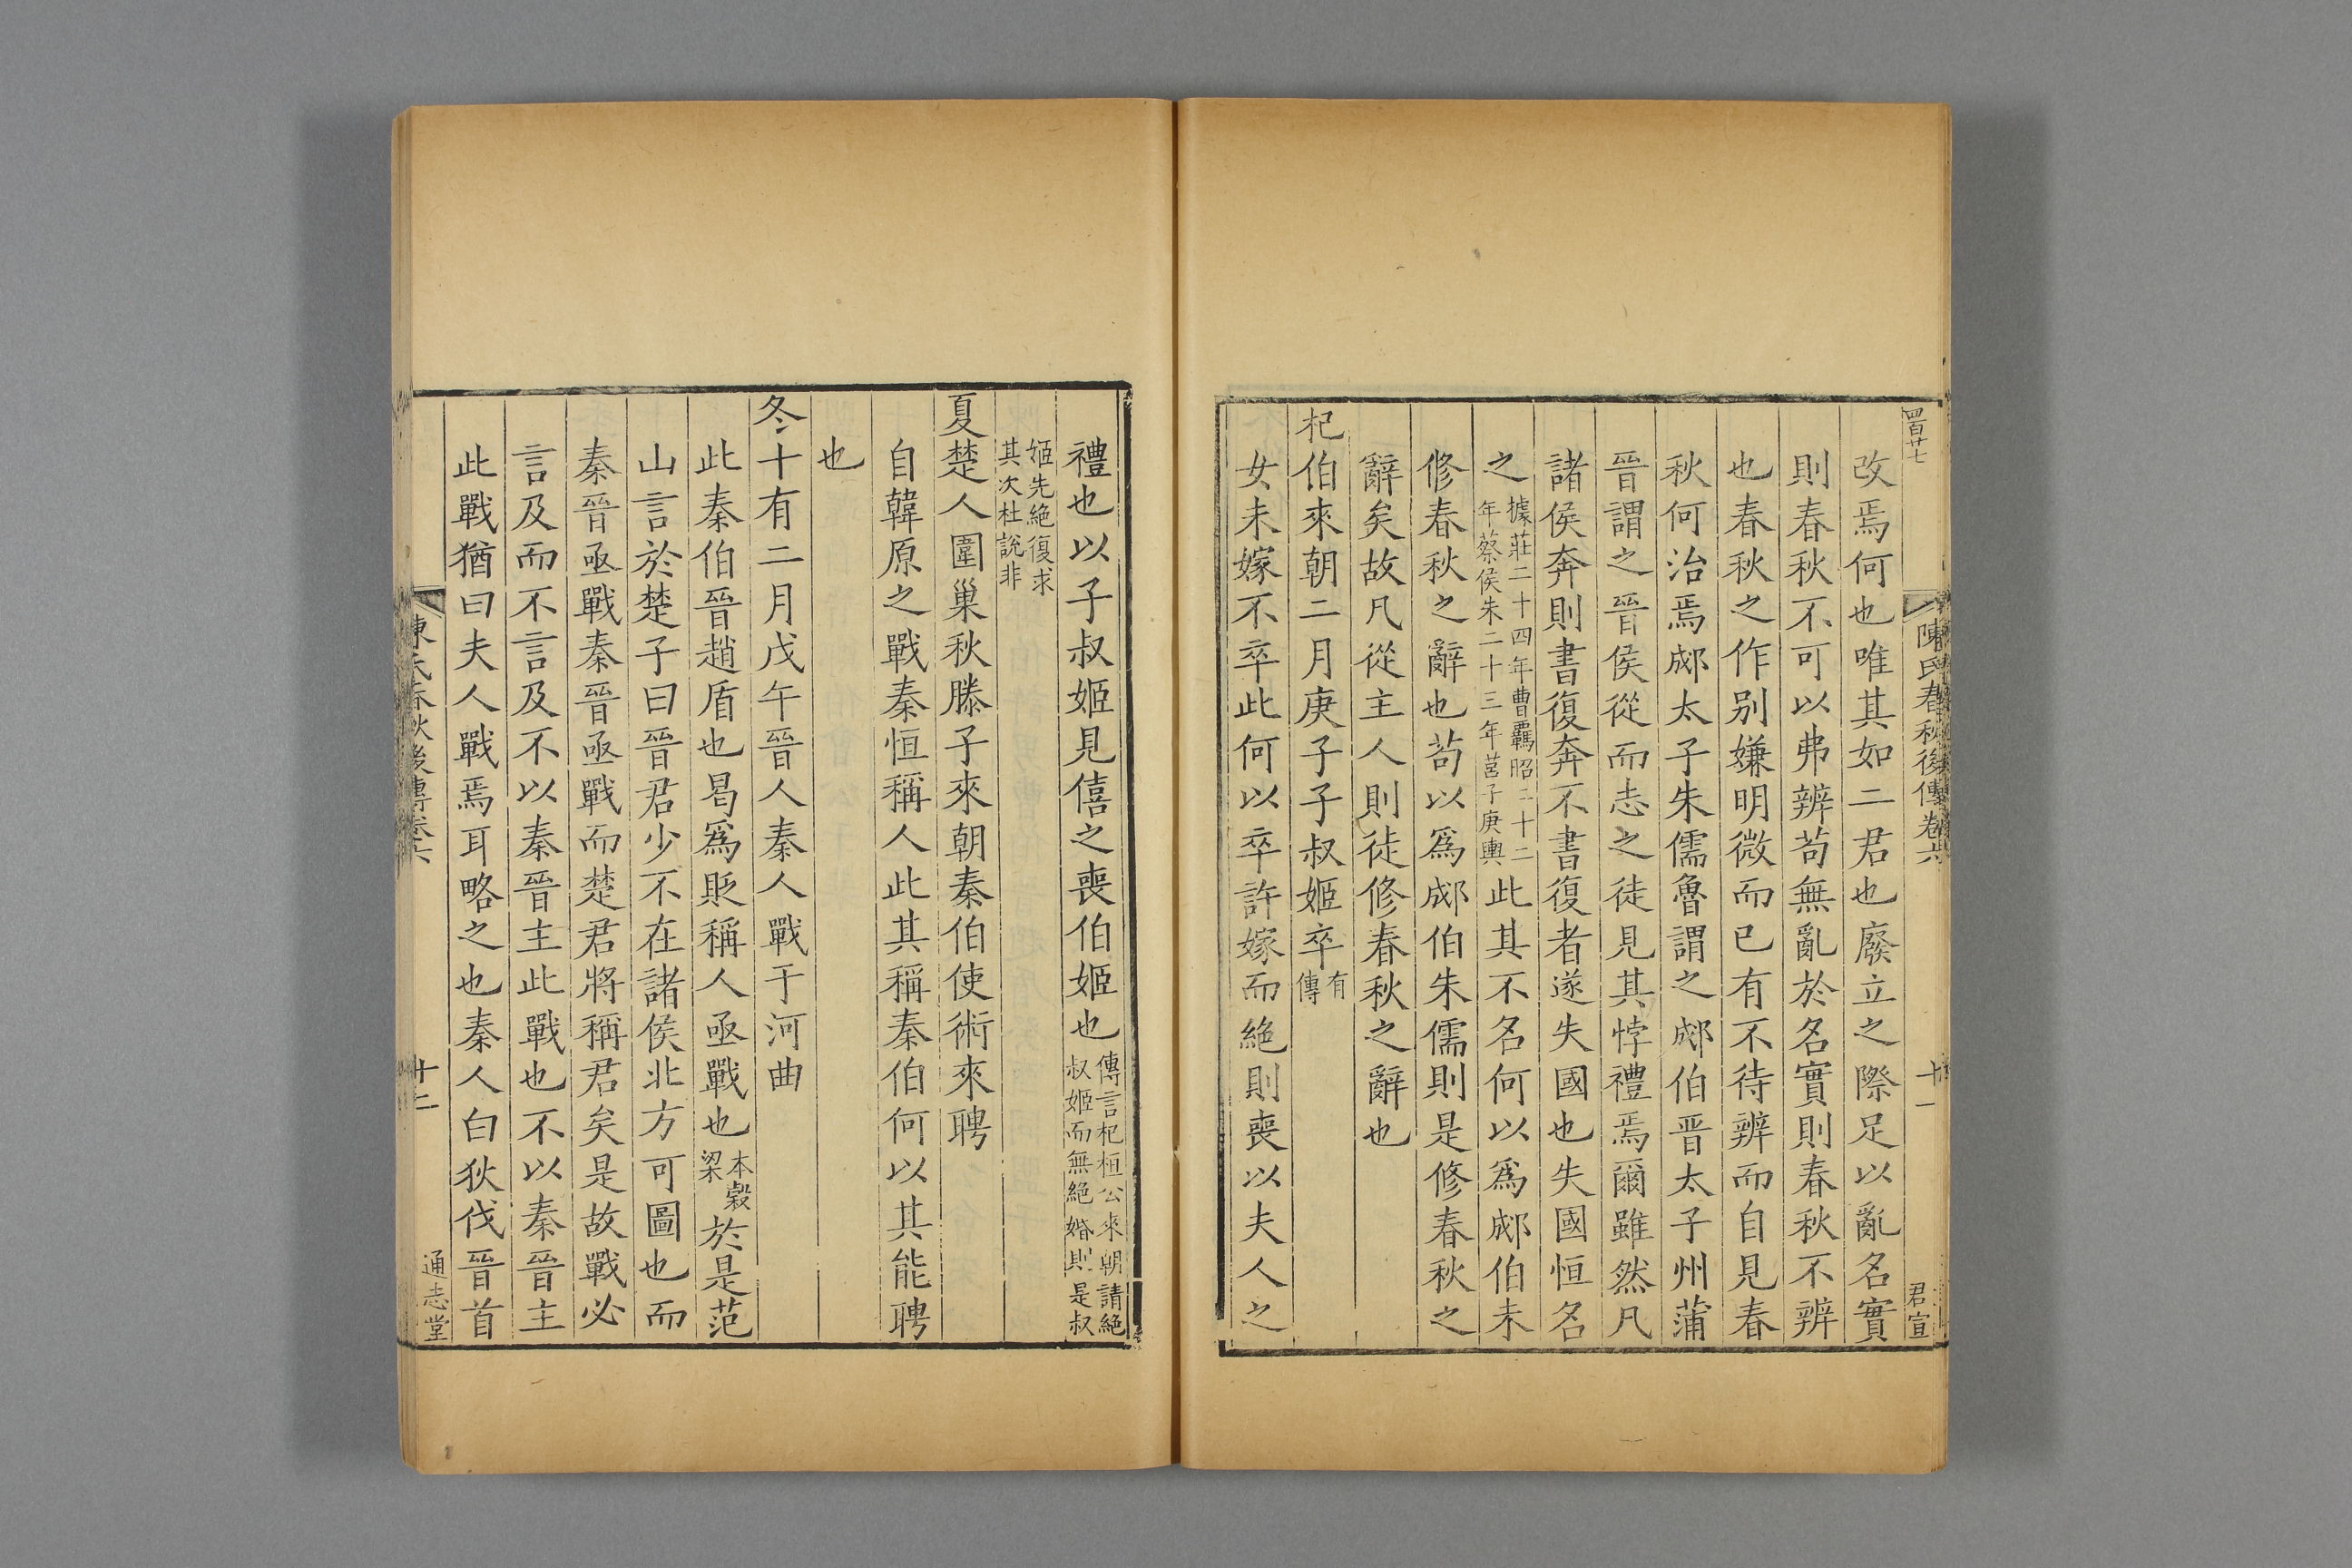 四百廿七 陳氏春秋後傳卷六 十一 君宣
改焉何也唯其如二君也廢立之際足以亂名實
則春秋不可以弗辨苟無亂於名實則春秋不辨
也春秋之作别嫌明微而已有不待辨而自見春
秋何治焉郕太子朱儒魯謂之郕伯晋太子州蒲
晉謂之晉侯從而志之徒見其悖禮焉爾雖然凡
諸侯奔則書復奔不書復者遂失國也失國恒名
之據莊二十四年曹羈昭二十二年蔡侯朱二十三年莒子庚輿此其不名何以爲郕伯未
修春秋之辭也苟以爲郕伯朱儒則是修春秋之
辭矣故凡從主人則徒修春秋之辭也
杞伯來朝二月庚子子叔姬卒有傳
女未嫁不卒此何以卒許嫁而絶則喪以夫人之
禮也以子叔姬見僖之喪伯姬也傳言杞桓公來朝請絶叔姬而無絶婚則是叔
姬先絶復求其次杜說非
夏楚人圍巢秋滕子來朝秦伯使術來聘
自韓原之戰秦恒稱人此其稱秦伯何以其能聘
也
冬十有二月戊午晉人秦人戰于河曲
此秦伯晉趙盾也曷爲貶稱人亟戰也本穀梁於是范
山言於楚子曰晉君少不在諸侯北方可圖也而
秦晉亟戰秦晉亟戰而楚君將稱君矣是故戰必
言及而不言及不以秦晉主此戰也不以秦晉主
此戰猶曰夫人戰焉耳略之也秦人白狄伐晉首
陳氏春秋後傳卷六 十二 通志堂